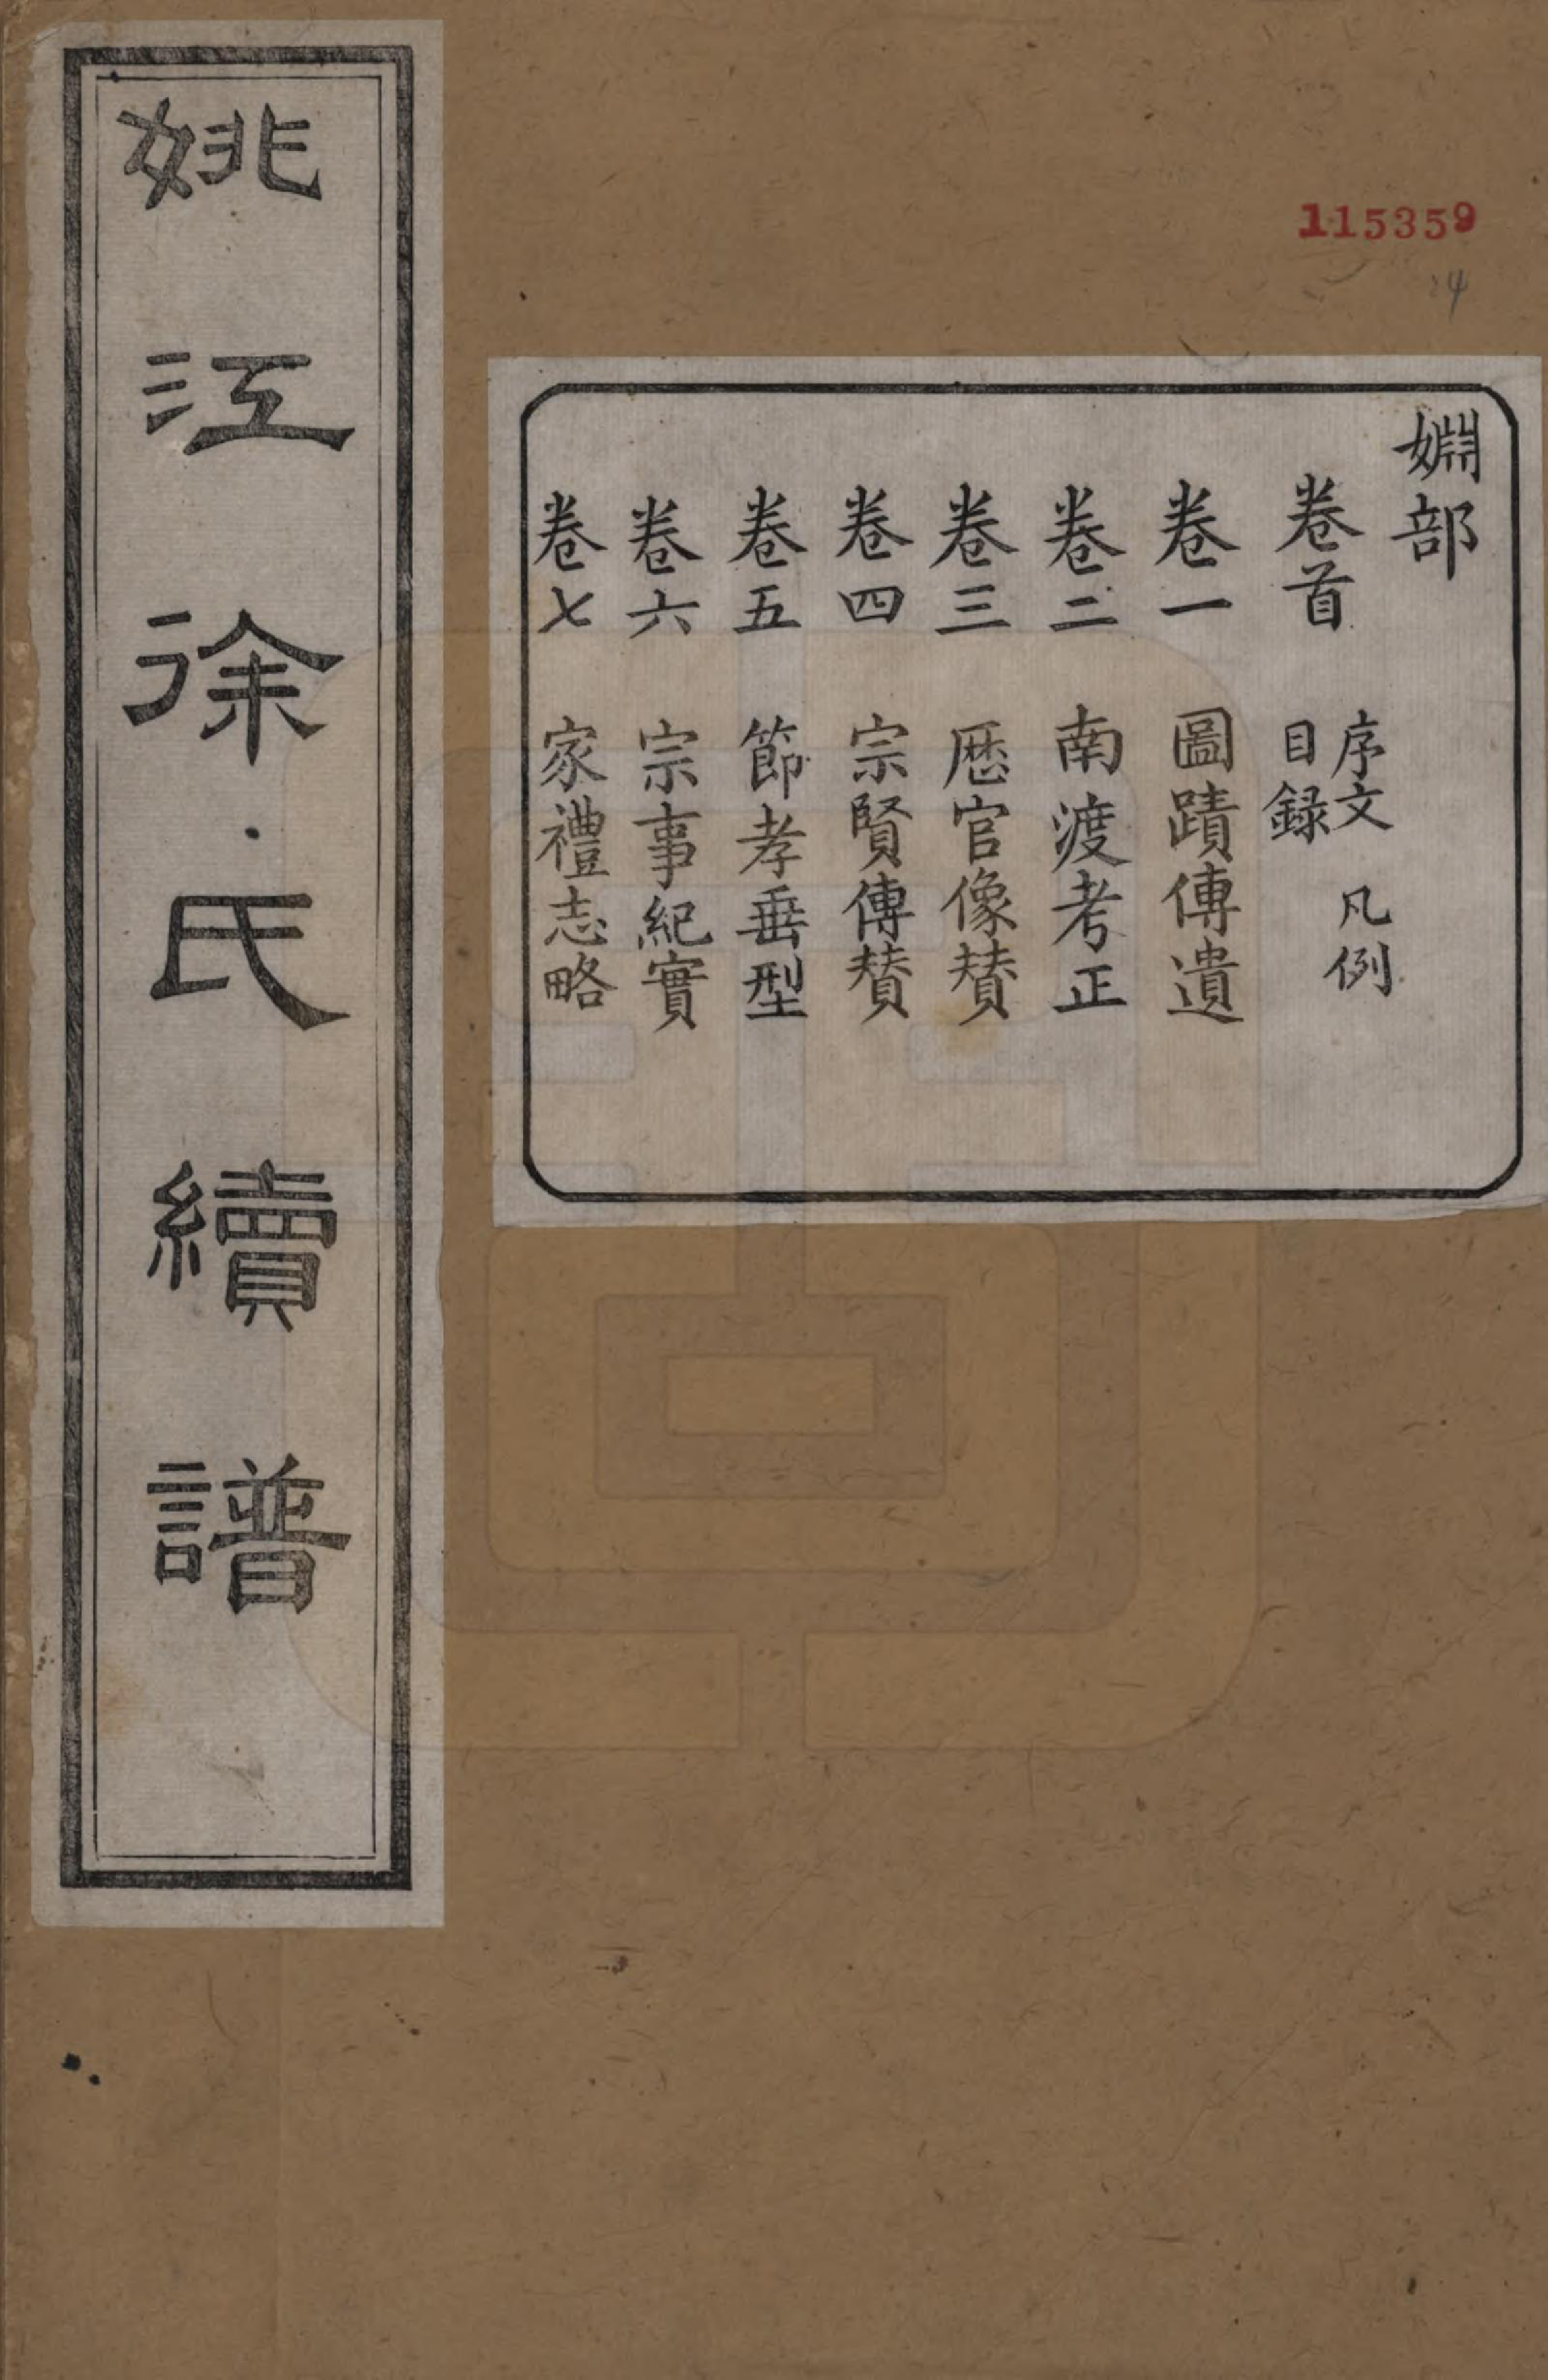 姚江徐氏續譜
115359
24
嫻部
卷首 序文 凡例
目録
卷一 圖蹟傳遺
卷二 南渡考正
卷三 歷官像賛
卷四 宗賢傳賛
卷五 節孝垂型
卷六 宗事紀實
卷七 家禮志略